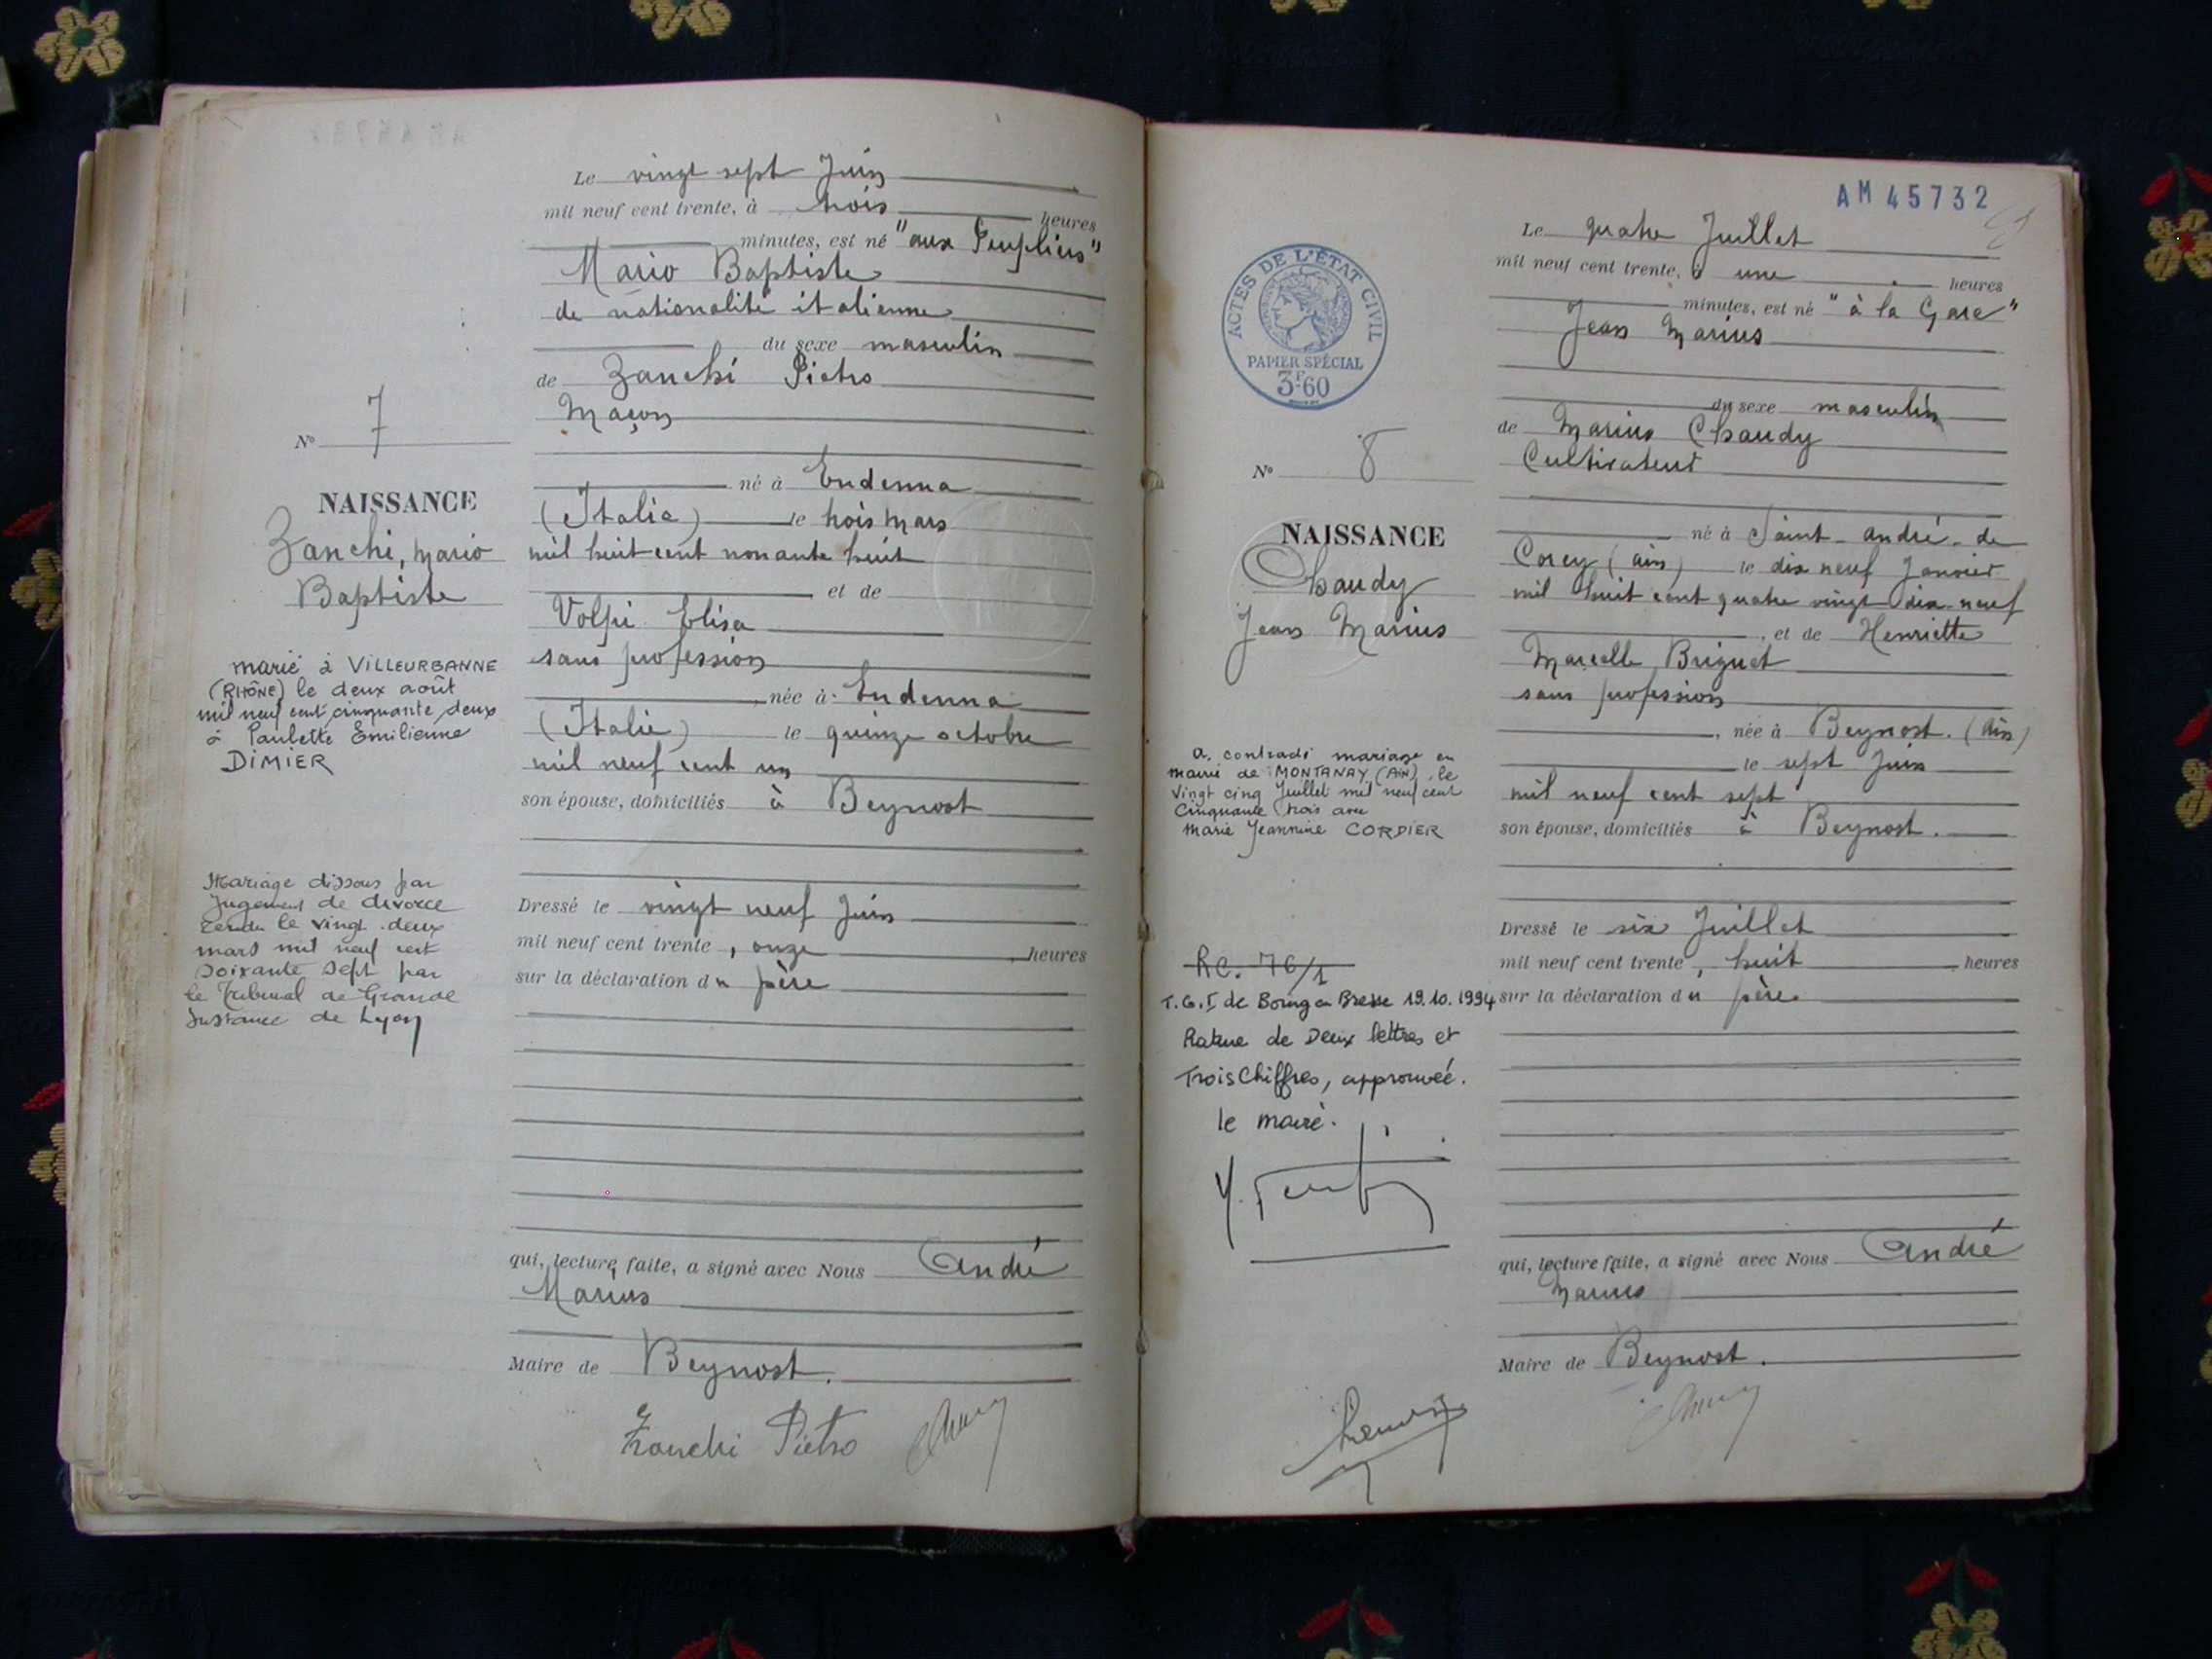 Le vingt sept Juin
mil neuf cent trente, à trois heures
minutes, est né "aux Peupliers"
Mario Baptiste
de nationalité italienne
du sexe masculin
de Zanchi Pietro
Maçon
né à Endenna
(Italie) le trois Mars
mil huit cent nonante huit
et de
Volpi Elisa
sans profession
née à Endenna
(Italie) le quinze octobre
mil neuf cent un
son épouse, domiciliés à Beynost
Dressé le vingt neuf Juin
mil neuf cent trente, onze heures
sur la déclaration du père
qui, lecture faite, a signé avec Nous André
Marius
Maire de Beynost.
Zanchi Pietro
No 7
NAISSANCE
Zanchi, Mario
Baptiste
marié à VILLEURBANNE
(RHÔNE) le deux août
mil neuf cent cinquante deux
à Paulette Emilienne
DIMIER
Mariage dissous par
Jugement de divorce
rendu le vingt-deux
mars mil neuf cent
soixante sept par
le Tribunal de Grande
Instance de Lyon
AM 45732
ACTES DE L'ÉTAT CIVIL
PAPIER SPÉCIAL
3F60
No 8
NAISSANCE
Chaudy
Jean Marius
a. contracté mariage en
mairie de MONTANAY (AIN) le
vingt cinq Juillet mil neuf cent
Cinquante trois avec
Marie Jeannine CORDIER
RC. 76/1
T.G.I de Bourg en Bresse 19.10.1994
Rature de Deux lettres et
Trois Chiffres, approuvée.
le maire.
Le quatre Juillet
mil neuf cent trente, à une heures
minutes, est né "à la Gare"
Jean Marius
du sexe masculin
de Marius Chaudy
Cultivateur
né à Saint-André-de
Corcy (Ain) le dix neuf Janvier
mil huit cent quatre vingt dix neuf
, et de Henriette
Marcelle Briguet
sans profession
, née à Beynost. (Ain)
le sept Juin
mil neuf cent sept
son épouse, domiciliés à Beynost.
Dressé le six Juillet
mil neuf cent trente, huit heures
sur la déclaration du père
qui, lecture faite, a signé avec Nous André
Marius
Maire de Beynost.